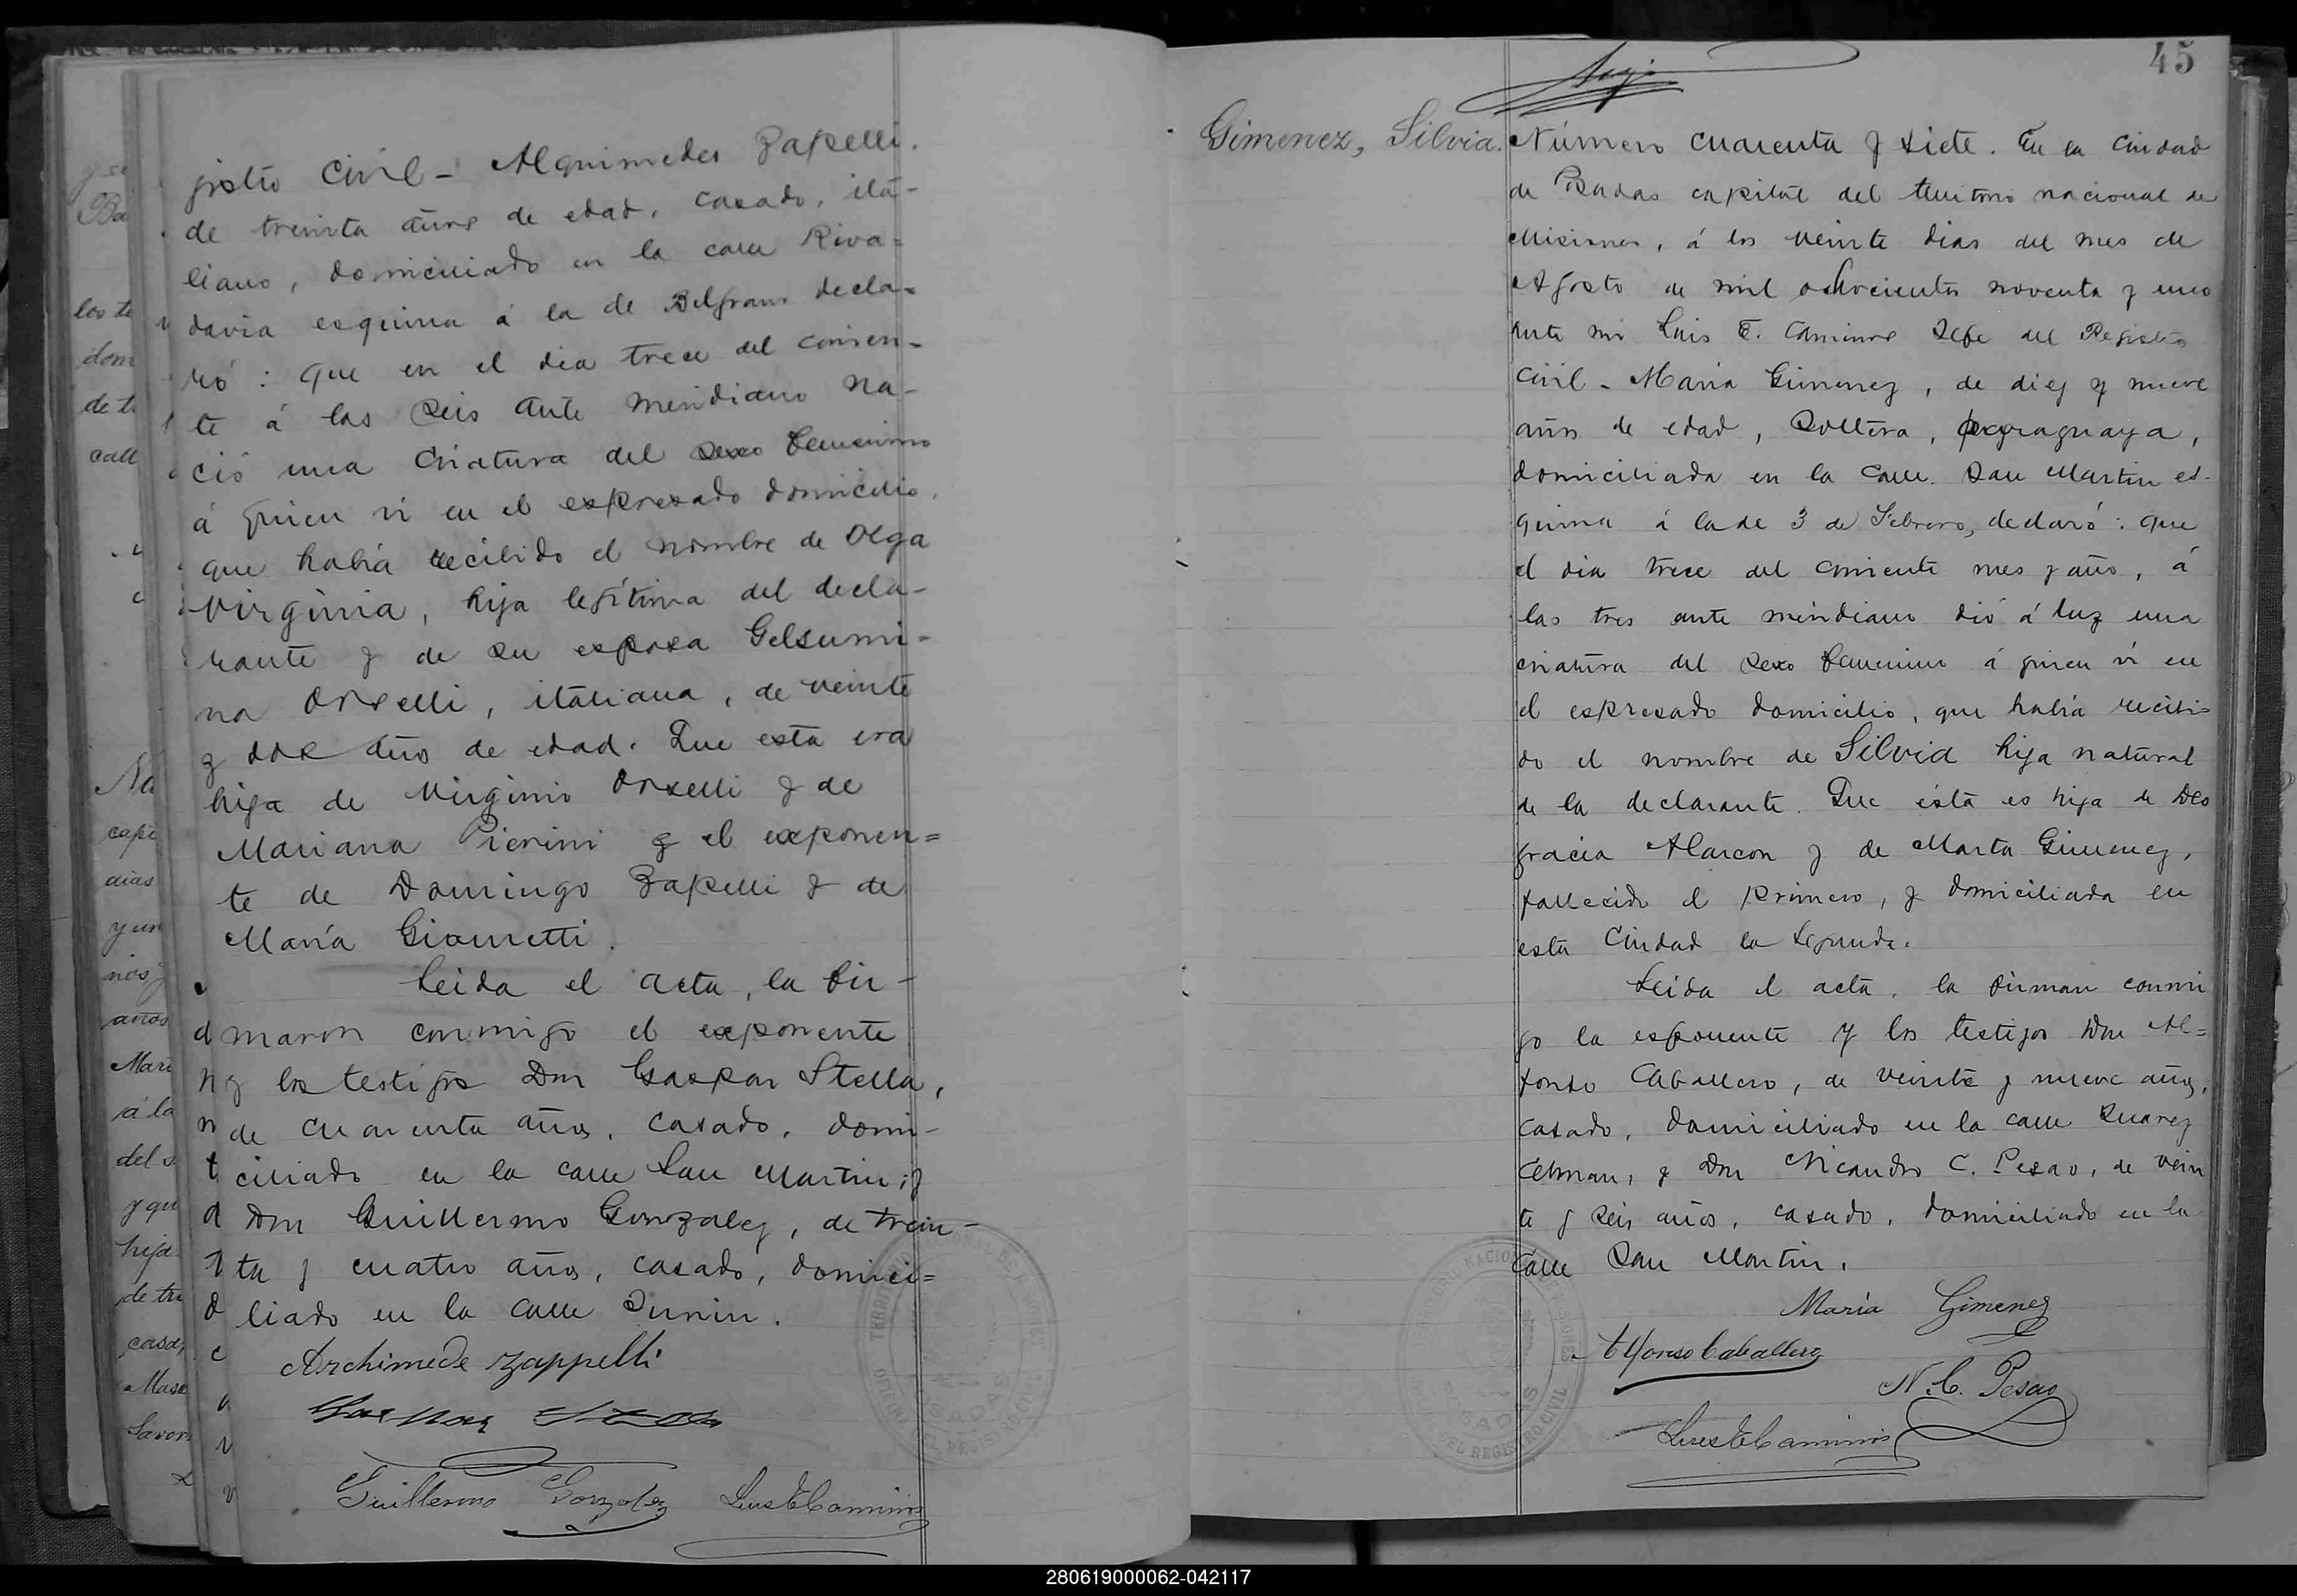 gistro Civil - Alquimedes Zapelli.
de treinta años de edad, casado, ita-
liano, domiciliado en la calle Riva-
davia esquina á la de Belgrano decla-
ró: que en el dia trece del corrien-
te á las seis ante meridiano na-
ció una criatura del sexo femenino
á quien ví en el expresado domicilio,
que había recibido el nombre de Olga
Virginia, hija legítima del decla-
rante y de su esposa Gelsumi-
na Orselli, italiana, de veinte
y dos años de edad. Que esta era
hija de Virginio Orselli y de
Mariana Pierini y el exponen-
te de Domingo Zapelli y de
María Giometti.
Leida el acta, la fir-
maron conmigo el exponente
y los testigos Don Gaspar Stella,
de cuarenta años, casado, domi-
ciliado en la calle San Martin; y
Don Guillermo Gonzalez, de trein-
ta y cuatro años, casado, domici-
liado en la calle Junin.
Archimede Zappelli
Guillermo Gonzalez Luis E Caminos
45
Gimenez, Silvia.
Número cuarenta y siete. En la Ciudad
de Posadas capital del territorio nacional de
Misiones, á los veinte dias del mes de
Agosto de mil ochocientos noventa y uno
ante mi Luis E. Caminos Jefe del Registro
Civil - María Gimenez, de diez y nueve
años de edad, soltera, paraguaya,
domiciliada en la calle San Martin es-
quina á la de 3 de Febrero, declaró: que
el dia trece del corriente mes y año, á
las tres ante meridiano dió á luz una
criatura del sexo femenino á quien ví en
el espresado domicilio, que había recibi-
do el nombre de Silvia hija natural
de la declarante. Que ésta es hija de Deo
gracia Alarcon y de Marta Gimenez,
fallecido el primero, y domiciliada en
esta Ciudad la segunda.
Leida el acta, la firman conmi
go la esponente y los testigos Don Al-
fonso Caballero, de veinte y nueve años,
casado, domiciliado en la calle Juarez
Celman, y Don Nicandro C. Pesao, de vein
te y seis años, casado, domiciliado en la
calle San Martin.
María Gimenez
Alfonso Caballero
N. C. Pesao
Luis E Caminos
TERRITORIO NACIONAL DE MISIONES
POSADAS
DEL REGISTRO CIVIL
280619000062-042117